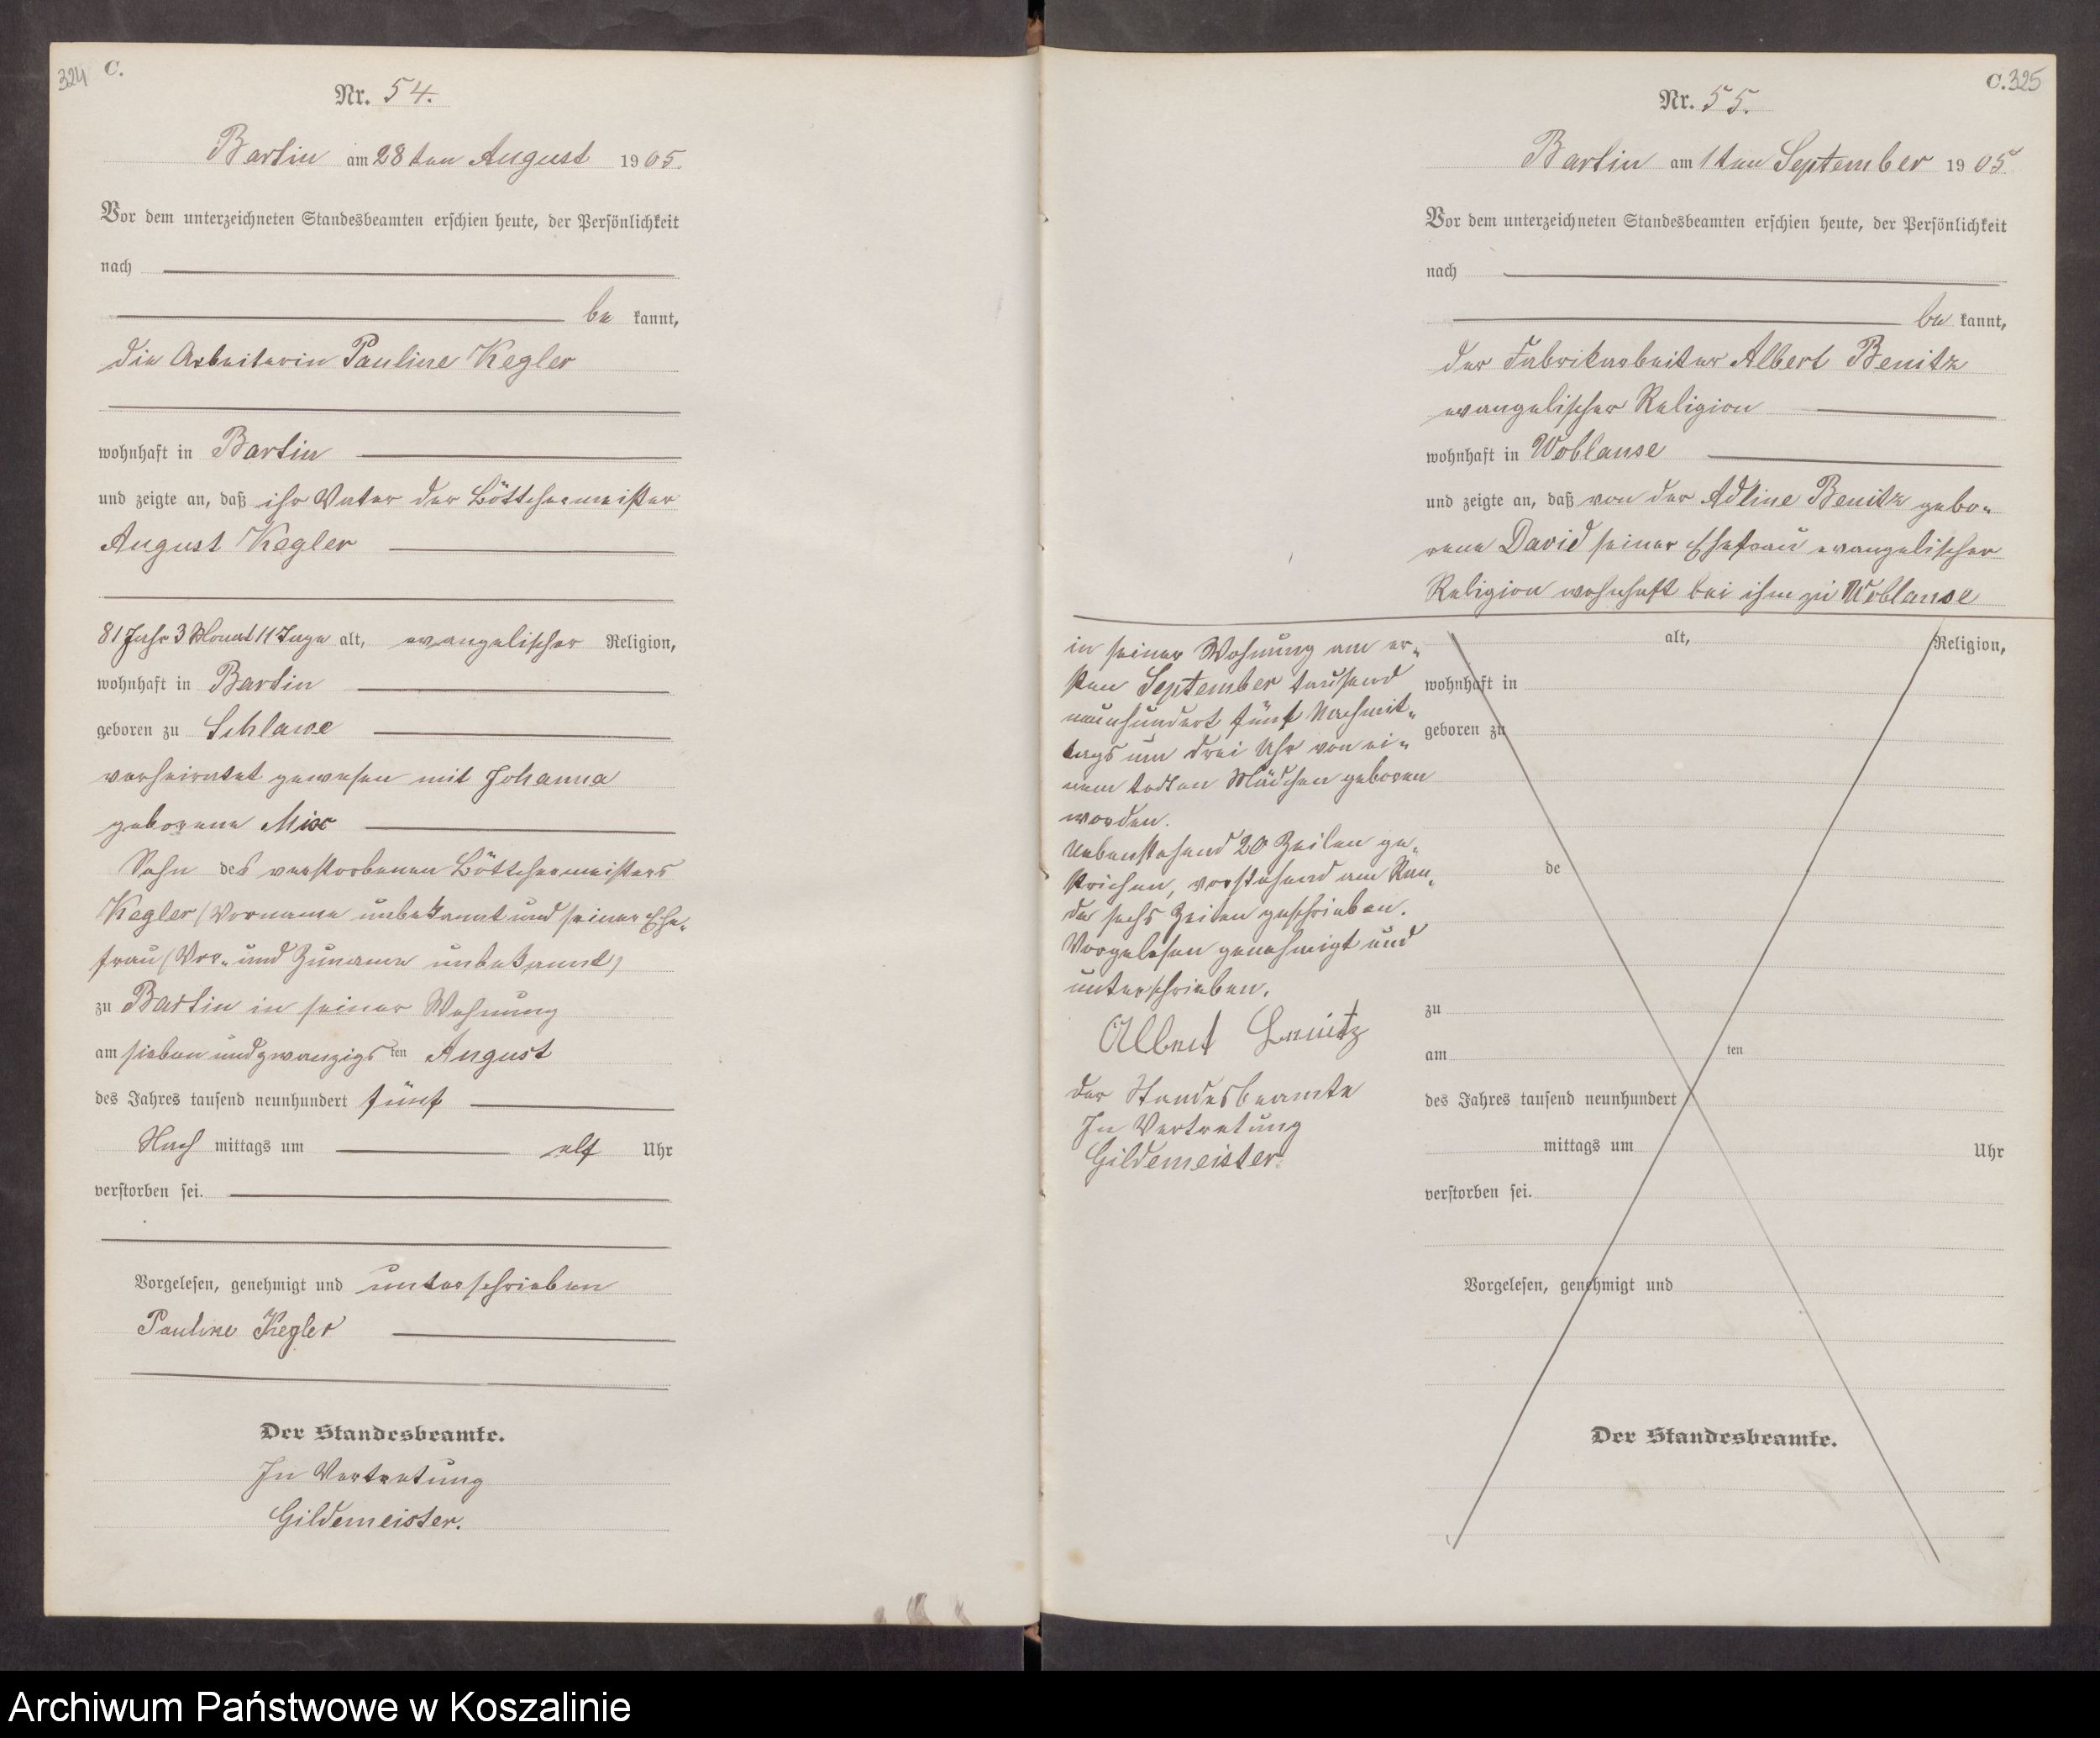 324 C.
Nr. 54.
Bartin am 28ten August 1905.
Vor dem unterzeichneten Standesbeamten erschien heute, der Persönlichkeit
nach
be kannt,
die Arbeiterin Pauline Kegler
wohnhaft in Bartin
und zeigte an, daß ihr Vater der Böttchermeister
August Kegler
81 Jahr 3 Monat 11 Tage alt, evangelischer Religion,
wohnhaft in Bartin
geboren zu Schlawe
verheiratet gewesen mit Johanna
geborene Mix
Sohn des verstorbenen Böttchermeisters
Kegler (Vorname unbekannt und seiner Ehe„
frau (Vor„ und Zuname unbekannt)
zu Bartin in seiner Wohnung
am sieben und zwanzigs ten August
des Jahres tausend neunhundert fünf
Nach mittags um elf Uhr
verstorben sei.
Vorgelesen, genehmigt und unterschrieben
Pauline Kegler
Der Standesbeamte.
In Vertretung
Gildemeister.
C. 325
Nr. 55.
Bartin am 1ten September 1905
Vor dem unterzeichneten Standesbeamten erschien heute, der Persönlichkeit
nach
be kannt,
der Fabrikarbeiter Albert Benitz
evangelischer Religion
wohnhaft in Woblanse
und zeigte an, daß von der Adline Benitz gebo„
rene David seiner Ehefrau evangelischer
Religion wohnhaft bei ihm zu Woblanse
in seiner Wohnung am er„
sten September tausend
neunhundert fünf Nachmit„
tags um drei Uhr von ei„
nem todten Mädchen geboren
worden.
Nebenstehend 20 Zeilen ge„
strichen, vorstehend am Ran„
de sechs Zeilen geschrieben.
Vorgelesen genehmigt und
unterschrieben.
Albert Benitz
der Standesbeamte
In Vertretung
Gildemeister.
alt, Religion,
wohnhaft in
geboren zu
de
zu
am ten
des Jahres tausend neunhundert
mittags um Uhr
verstorben sei.
Vorgelesen, genehmigt und
Der Standesbeamte.
Archiwum Państwowe w Koszalinie